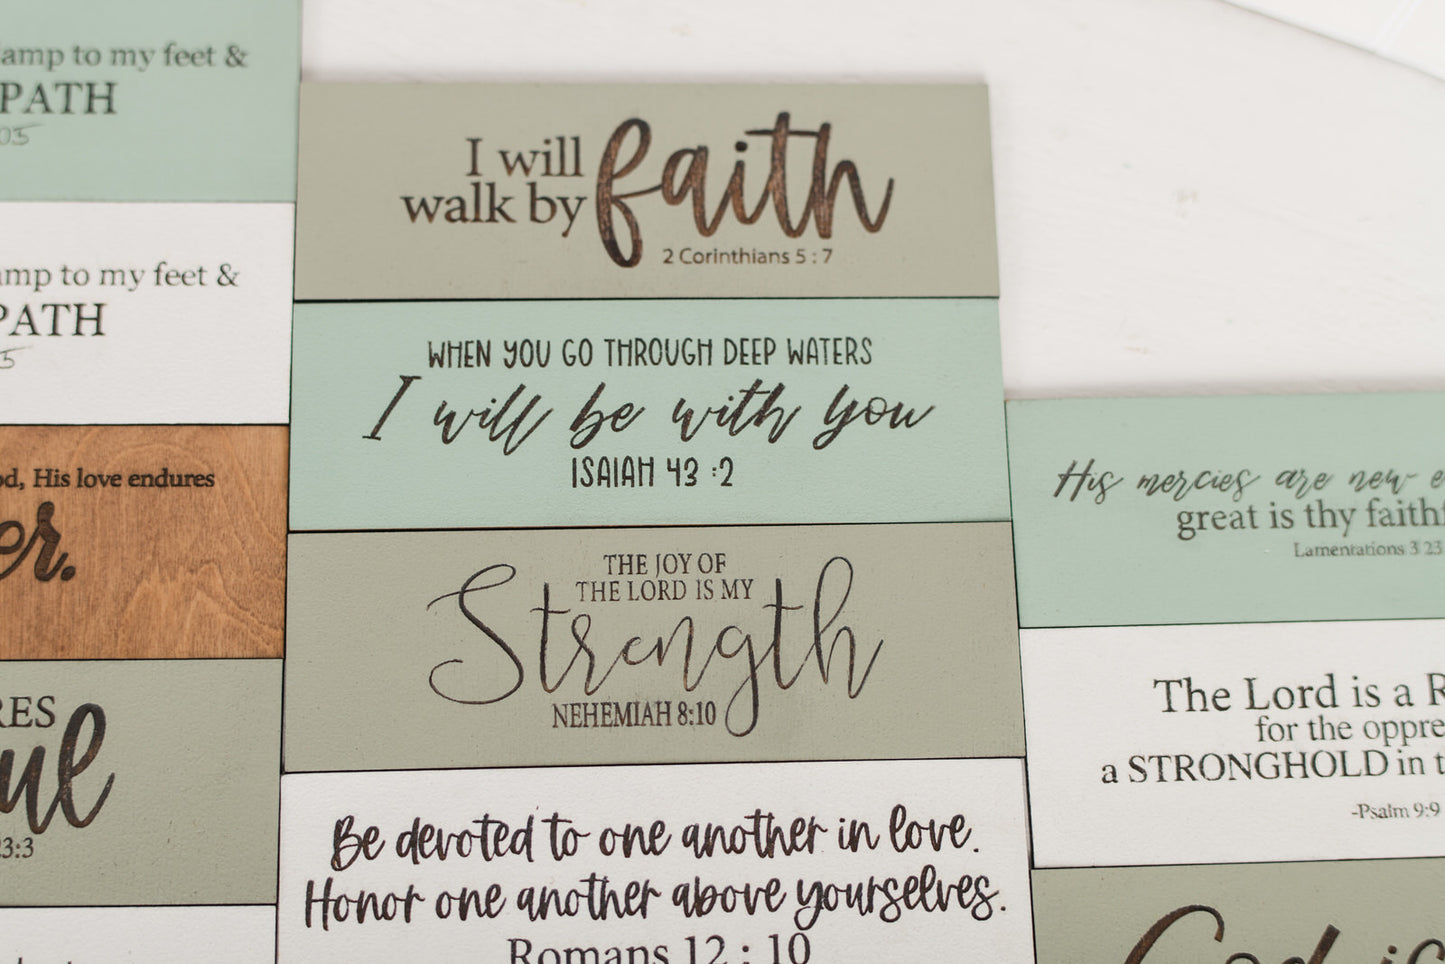 to my feet &
PATH
to my feet &
PATH
His love endures
23:3
I will
walk by faith
2 Corinthians 5 : 7
WHEN YOU GO THROUGH DEEP WATERS
I will be with you
ISAIAH 43 :2
THE JOY OF
THE LORD IS MY
Strength
NEHEMIAH 8:10
Be devoted to one another in love.
Honor one another above yourselves.
Romans 12 : 10
His mercies are new
great is thy
Lamentations 3 23
The Lord is a
for the
a STRONGHOLD in
-Psalm 9:9
God is